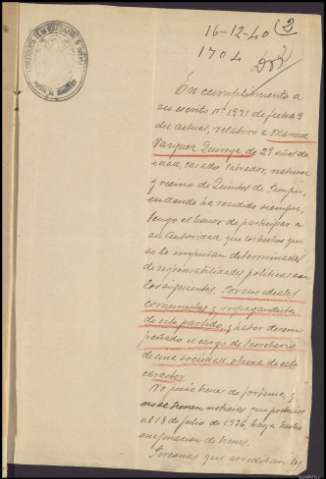 16-12-40
2
1704
En cumplimiento a
su escrito nº 1931 de fecha 9
del actual, relativo a Manuel
Vazquez Quiroga, de 29 años de
edad, casado, labrador, natural
y vecino de
en donde ha residido siempre,
tengo el honor de participar a
su Autoridad, que los hechos que
se le imputan determinados
de responsabilidades politicas son
los siguientes. Por sus ideales
comunistas y propagandista
de este partido, y haber desem
peñado el cargo de Secretario
de una sociedad obrera de este
caracter.
No posee bienes de fortuna, y
no se tienen noticias que posterior
al 18 de julio de 1936, haya hecho
de bienes.
Personas que